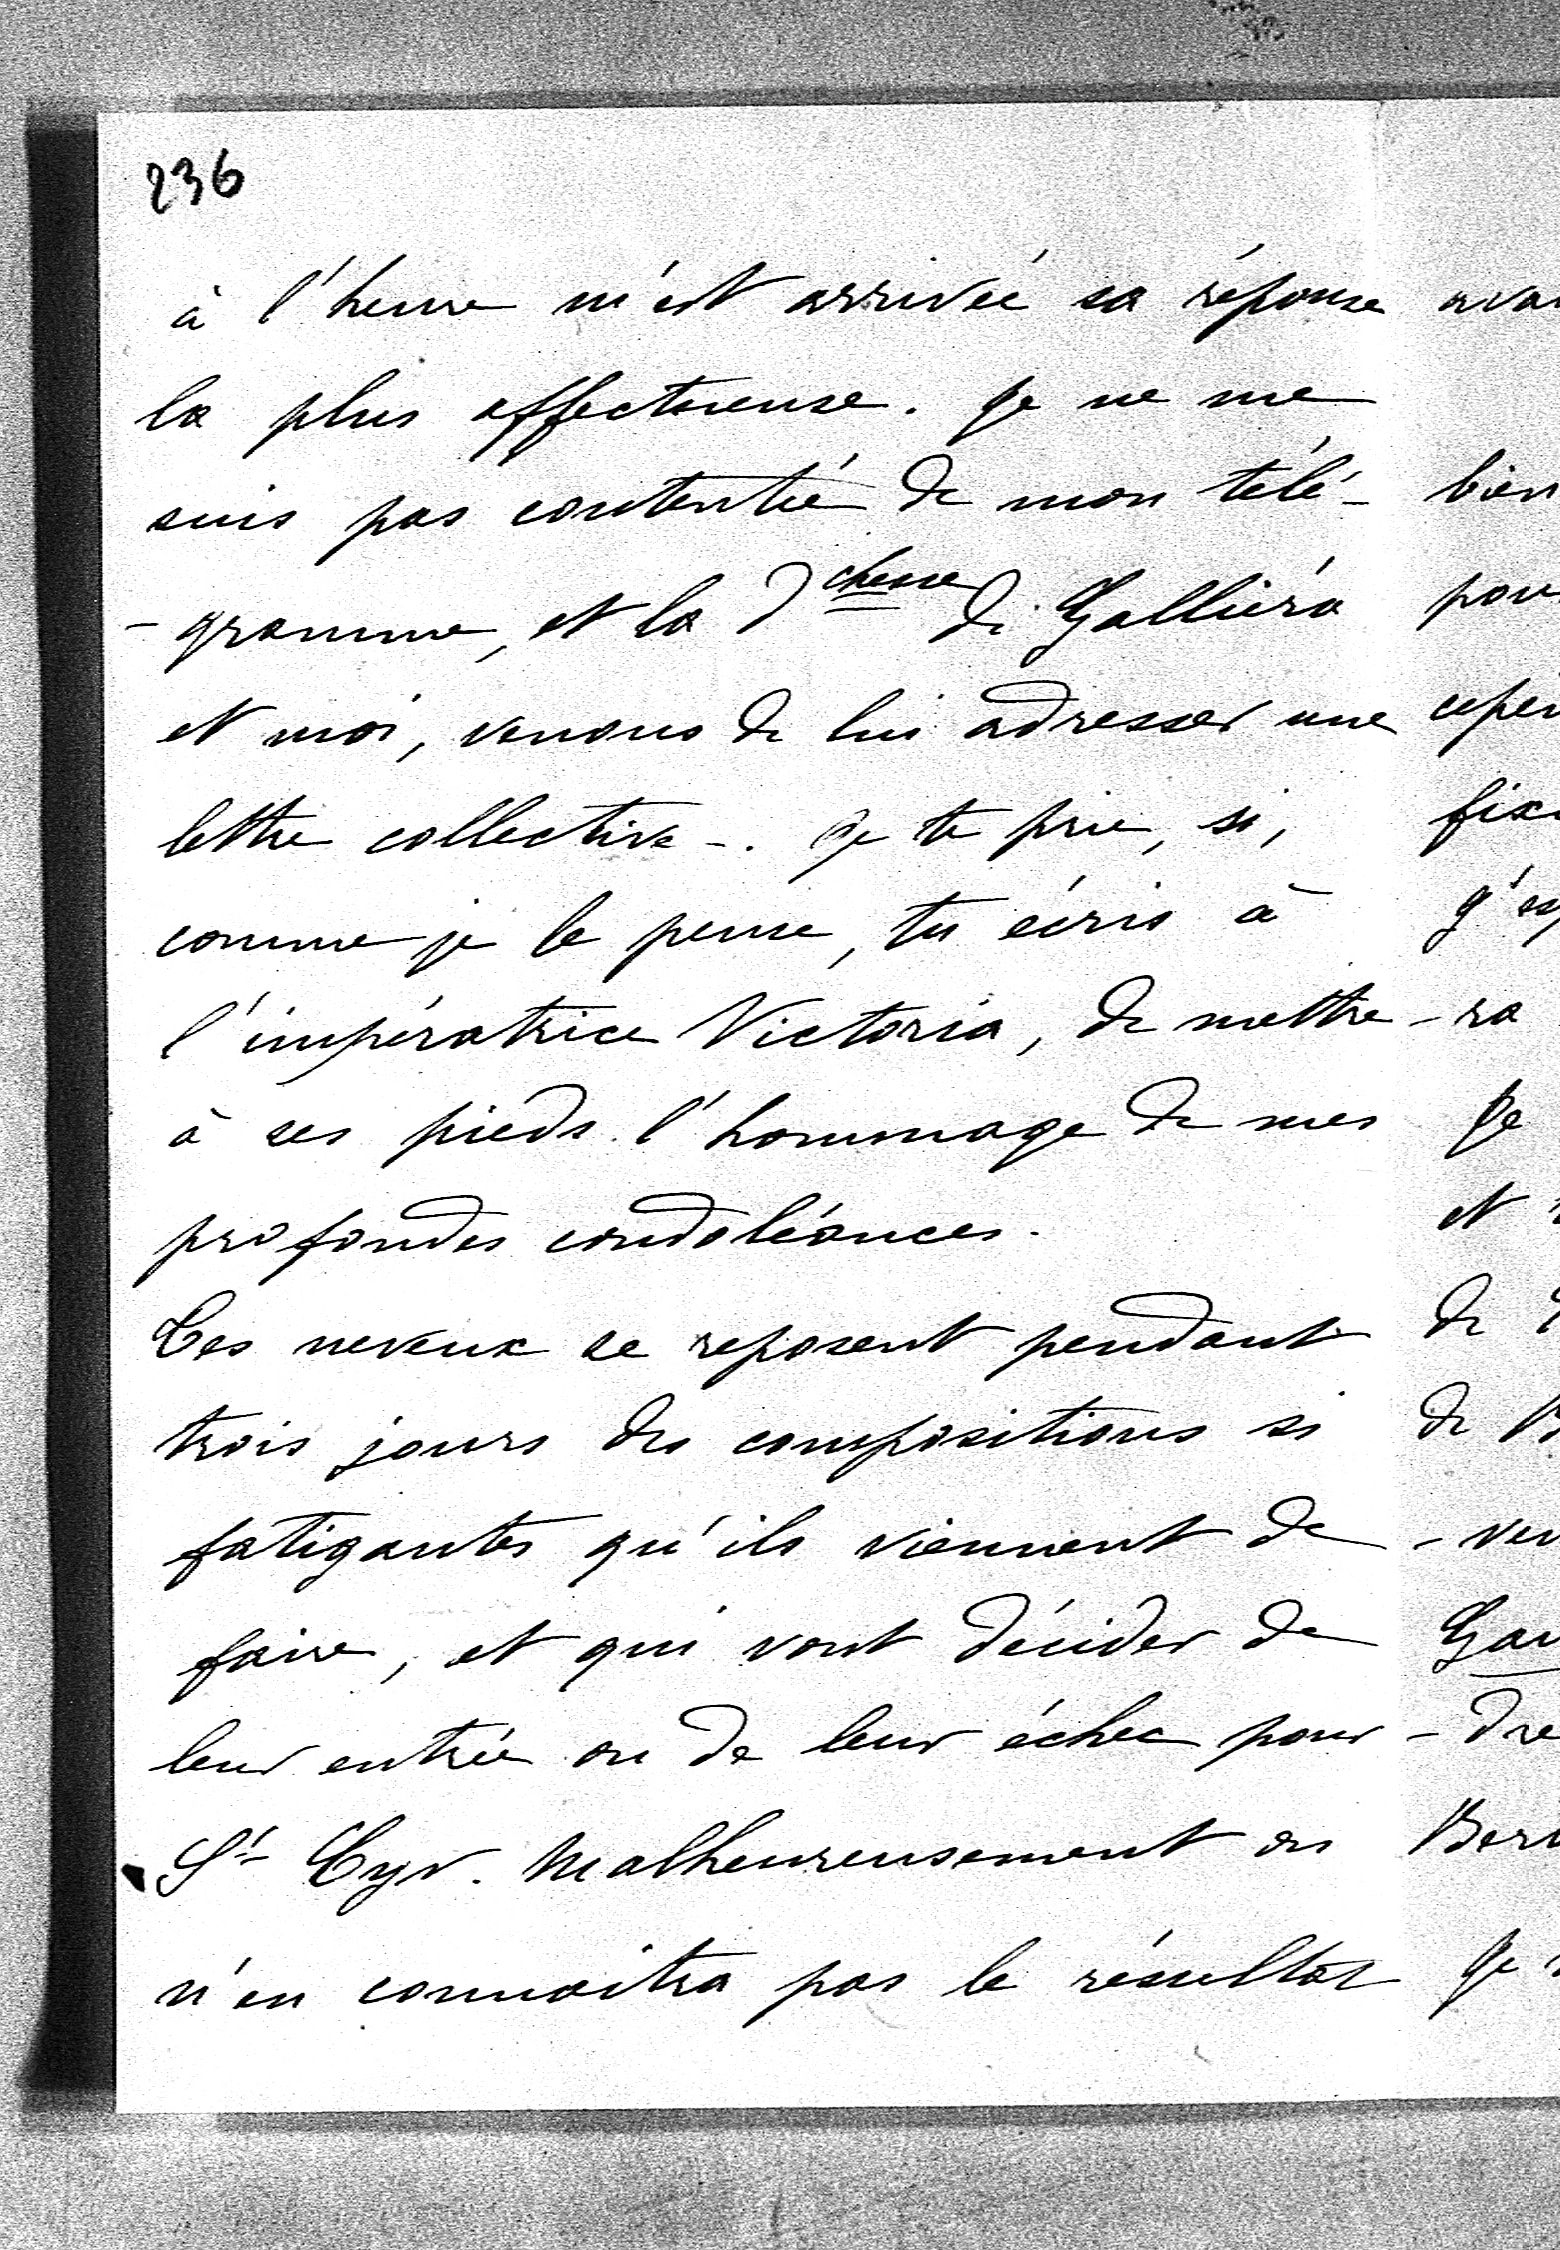 236
à l'heure m'est arrivée sa réponse
la plus affectueuse. Je ne me
suis pas contenté de mon télé-
-gramme, et la Dchesse de Galliéra
et moi, venons de lui adresser une
lettre collective -. Je te prie, si,
comme je le pense, tu écris à
l'impératrice Victoria, de mettre
à ses pieds l'hommage de mes
profondes condoléances.
Tes neveux se reposent pendant
trois jours des compositions si
fatigantes qu'ils viennent de
faire, et qui vont décider de
leur entrée ou de leur échec pour
St Cyr. Malheureusement on
n'en connaitra pas le résultat
bien
-ra
Je
et
de
de